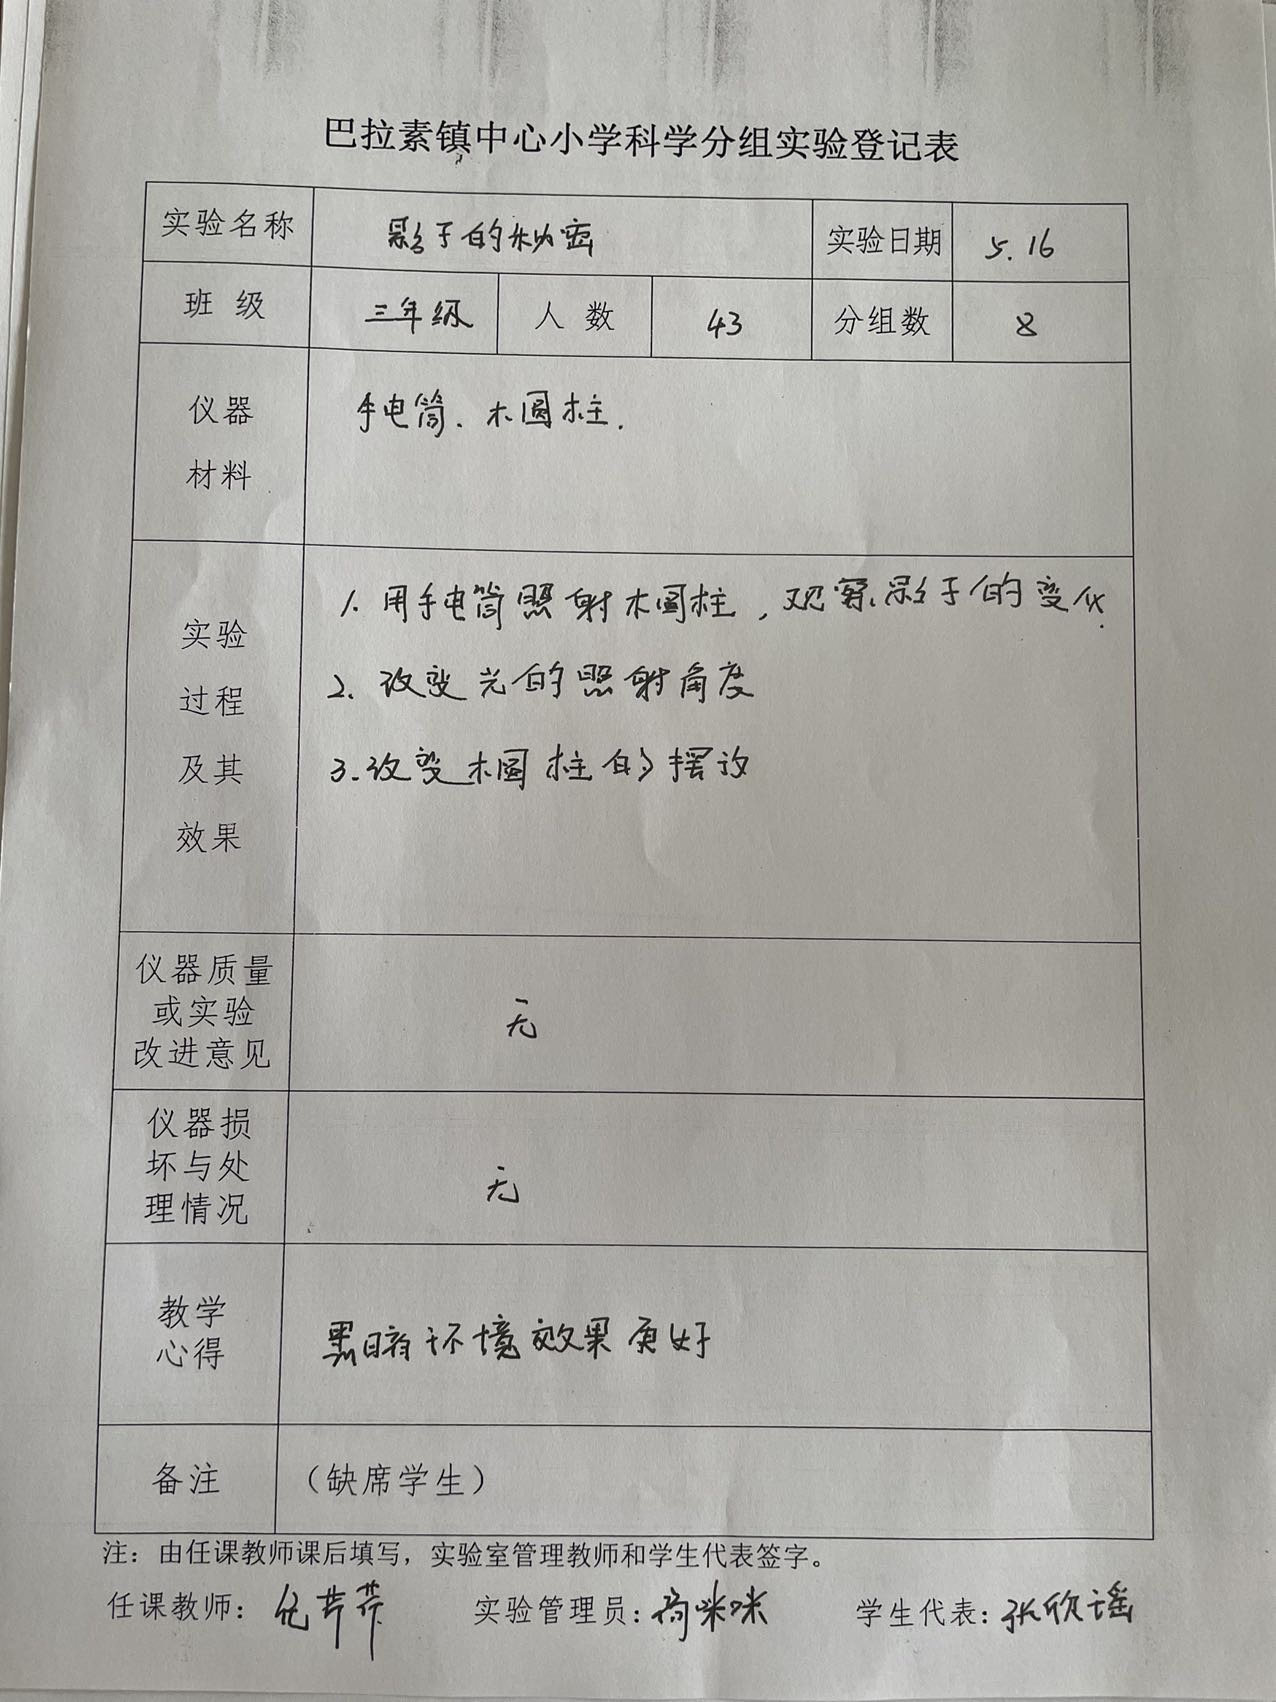 巴拉素镇中心小学科学分组实验登记表
实验名称 影子的秘密 实验日期 5.16
班级 三年级 人数 43 分组数 8
仪器
材料
手电筒、木圆柱.
实验
过程
及其
效果
1. 用手电筒照射木圆柱，观察影子的变化.
2. 改变光的照射角度
3. 改变木圆柱的摆放
仪器质量
或实验
改进意见
无
仪器损
坏与处
理情况
无
教学
心得
黑暗环境效果更好
备注 （缺席学生）
注：由任课教师课后填写，实验室管理教师和学生代表签字。
任课教师： 实验管理员： 学生代表：张欣谣